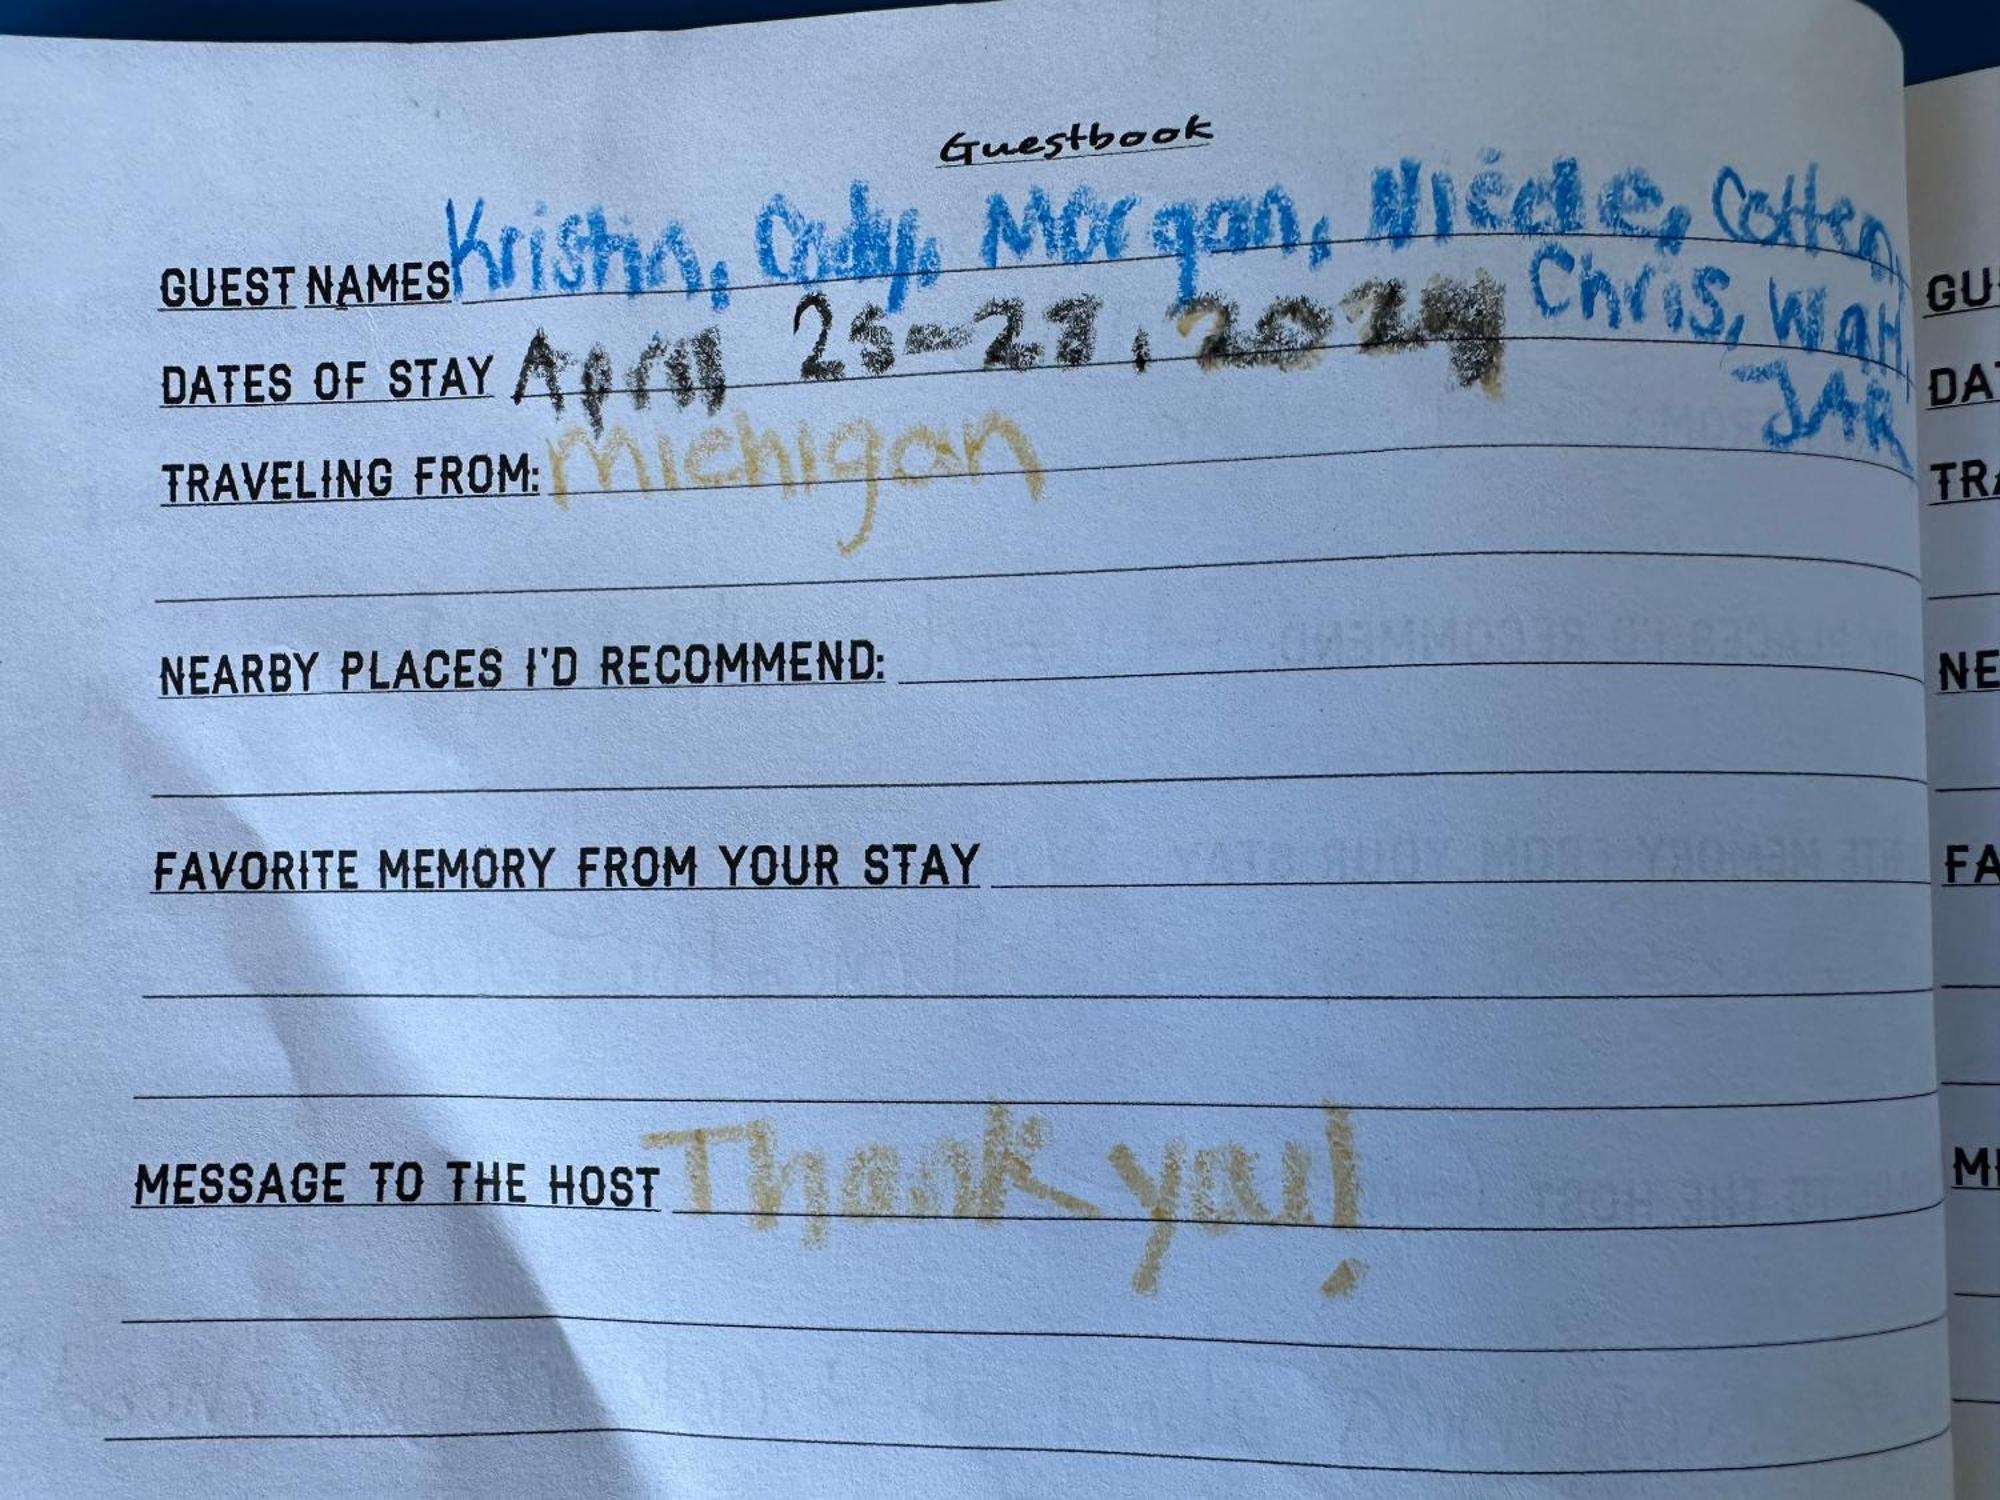 Guestbook
GUEST NAMES Kristin, Cody, Morgan, Nicole, Colten,
Chris, Walt,
DATES OF STAY April 25-27, 2024
JAR
TRAVELING FROM: Michigan
NEARBY PLACES I'D RECOMMEND:
FAVORITE MEMORY FROM YOUR STAY
MESSAGE TO THE HOST Thank you!
GU
DA
TRA
NE
FA
ME